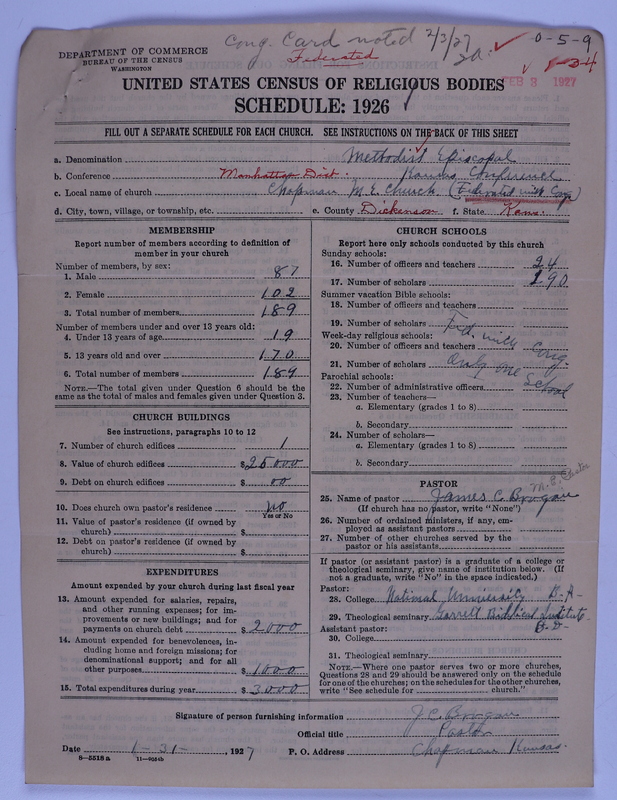 Cong. Card noted 2/3/27
Federated
0-5-9
DEPARTMENT OF COMMERCE
BUREAU OF THE CENSUS
WASHINGTON
FEB 3 1927
UNITED STATES CENSUS OF RELIGIOUS BODIES
SCHEDULE: 1926
FILL OUT A SEPARATE SCHEDULE FOR EACH CHURCH. SEE INSTRUCTIONS ON THE BACK OF THIS SHEET
a. Denomination Methodist Episcopal
b. Conference Manhattan Dist. Kansas Conference
c. Local name of church Chapman M.E. Church (Federated with Cong)
d. City, town, village, or township, etc. e. County Dickenson f. State Kans.
MEMBERSHIP
Report number of members according to definition of
member in your church
Number of members, by sex:
1. Male 87
2. Female 102
3. Total number of members 189
Number of members under and over 13 years old:
4. Under 13 years of age 19
5. 13 years old and over 170
6. Total number of members 189
NOTE.—The total given under Question 6 should be the
same as the total of males and females given under Question 3.
CHURCH BUILDINGS
See instructions, paragraphs 10 to 12
7. Number of church edifices 1
8. Value of church edifices $25000
9. Debt on church edifices $00
10. Does church own pastor's residence no
Yes or No
11. Value of pastor's residence (if owned by
church) $
12. Debt on pastor's residence (if owned by
church) $
EXPENDITURES
Amount expended by your church during last fiscal year
13. Amount expended for salaries, repairs,
and other running expenses; for im-
provements or new buildings; and for
payments on church debt $2000
14. Amount expended for benevolences, in-
cluding home and foreign missions; for
denominational support; and for all
other purposes $1000
15. Total expenditures during year $3000
CHURCH SCHOOLS
Report here only schools conducted by this church
Sunday schools:
16. Number of officers and teachers 24
17. Number of scholars 290
Summer vacation Bible schools:
18. Number of officers and teachers
19. Number of scholars Fed. with Cong.
Week-day religious schools:
20. Number of officers and teachers
21. Number of scholars Only one School
Parochial schools:
22. Number of administrative officers
23. Number of teachers—
a. Elementary (grades 1 to 8)
b. Secondary
24. Number of scholars—
a. Elementary (grades 1 to 8)
b. Secondary
PASTOR
25. Name of pastor James C. Brogan M.E.
(If church has no pastor, write "None")
26. Number of ordained ministers, if any, em-
ployed as assistant pastors
27. Number of other churches served by the
pastor or his assistants
If pastor (or assistant pastor) is a graduate of a college or
theological seminary, give name of institution below. (If
not a graduate, write "No" in the space indicated.)
Pastor:
28. College National University B.A.
29. Theological seminary Garrett Biblical Institute
B.D.
Assistant pastor:
30. College
31. Theological seminary
NOTE.—Where one pastor serves two or more churches,
Questions 28 and 29 should be answered only on the schedule
for one of the churches; on the schedules for the other churches,
write "See schedule for church."
Signature of person furnishing information J.C. Brogan
Official title Pastor
Date 1-31-, 1927 P. O. Address Chapman Kansas.
8—5518a 11—9024b